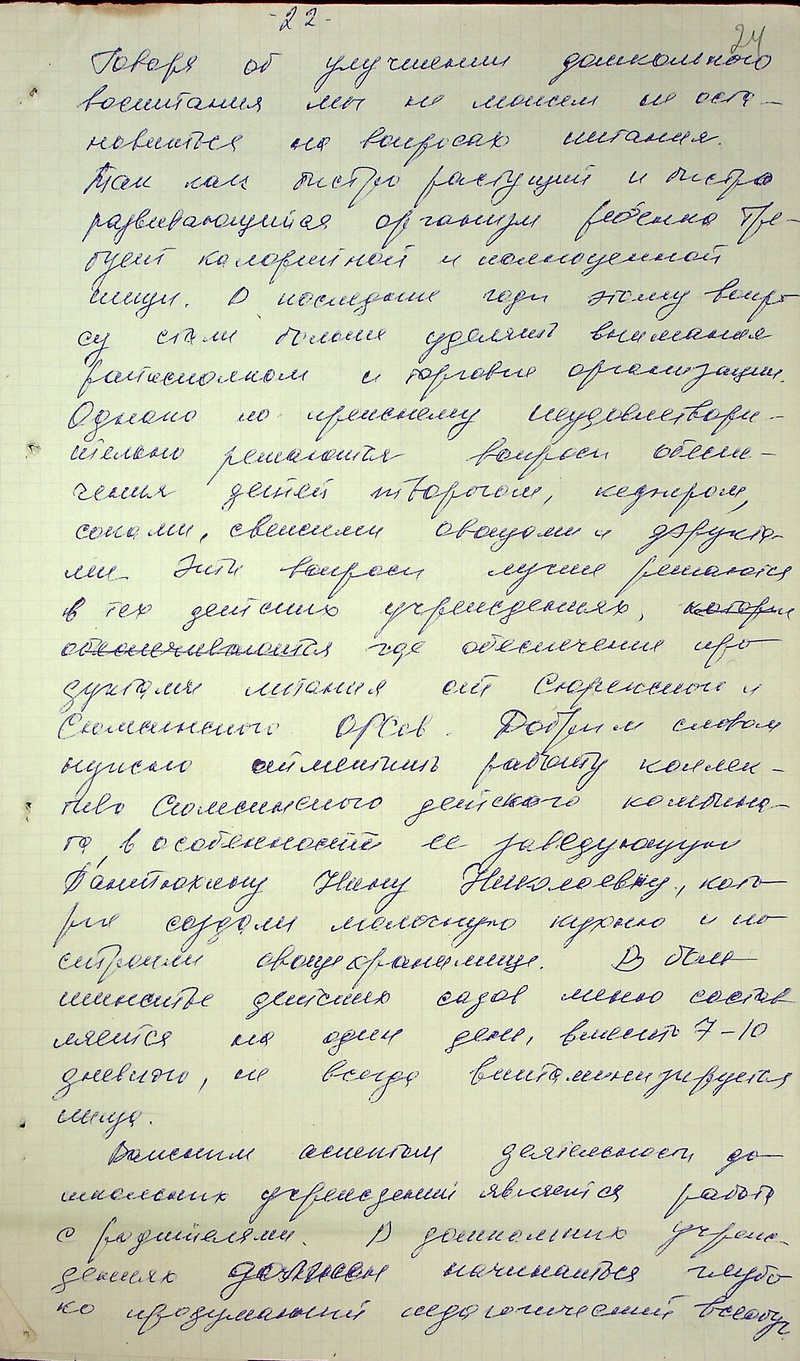 -22-
24
Говоря об улучшении дошкольного
воспитания мы не можем не оста-
новиться на вопросах питания.
Так как быстро растущий и быстро
развивающийся организм ребенка тре-
бует калорийной и полноценной
пищи. В последние годы этому вопро
су стали больше уделять внимания
райисполком и торговые организации.
Однако по прежнему неудовлетвори-
тельно решаются вопросы обеспе-
чения детей творогом, кефиром,
соками, свежими овощами и фрукта-
ми. Эти вопросы лучше решаются
в тех детских учреждениях, которые
обеспечиваются где обеспечение про
дуктами питания от Сюрекского и
Сюмсинского ОРСов. Добрым словом
нужно отметить работу коллек-
тива Сюмсинского детского комбина-
та, в особенности ее заведующую
Нину Николаевну, кото
рые создали молочную кухню и по
строили овощехранилище. В боль
шинстве детских садов меню состав
ляется на один день, вместо 7-10
дневного, не всегда витаминизируется
пища.
Важным аспектом деятельности до
школьных учреждений является работа
с родителями. В дошкольных учреж-
дениях должен начинаться глубо
ко продуманный педагогический всеобуч